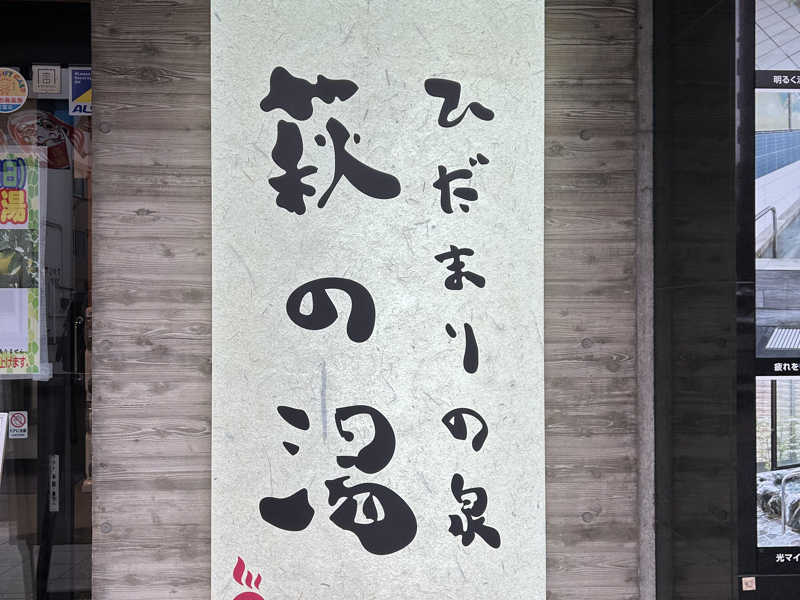 ひだまりの泉
萩の湯
湯
上げます。
明るく
疲れを
光マイ